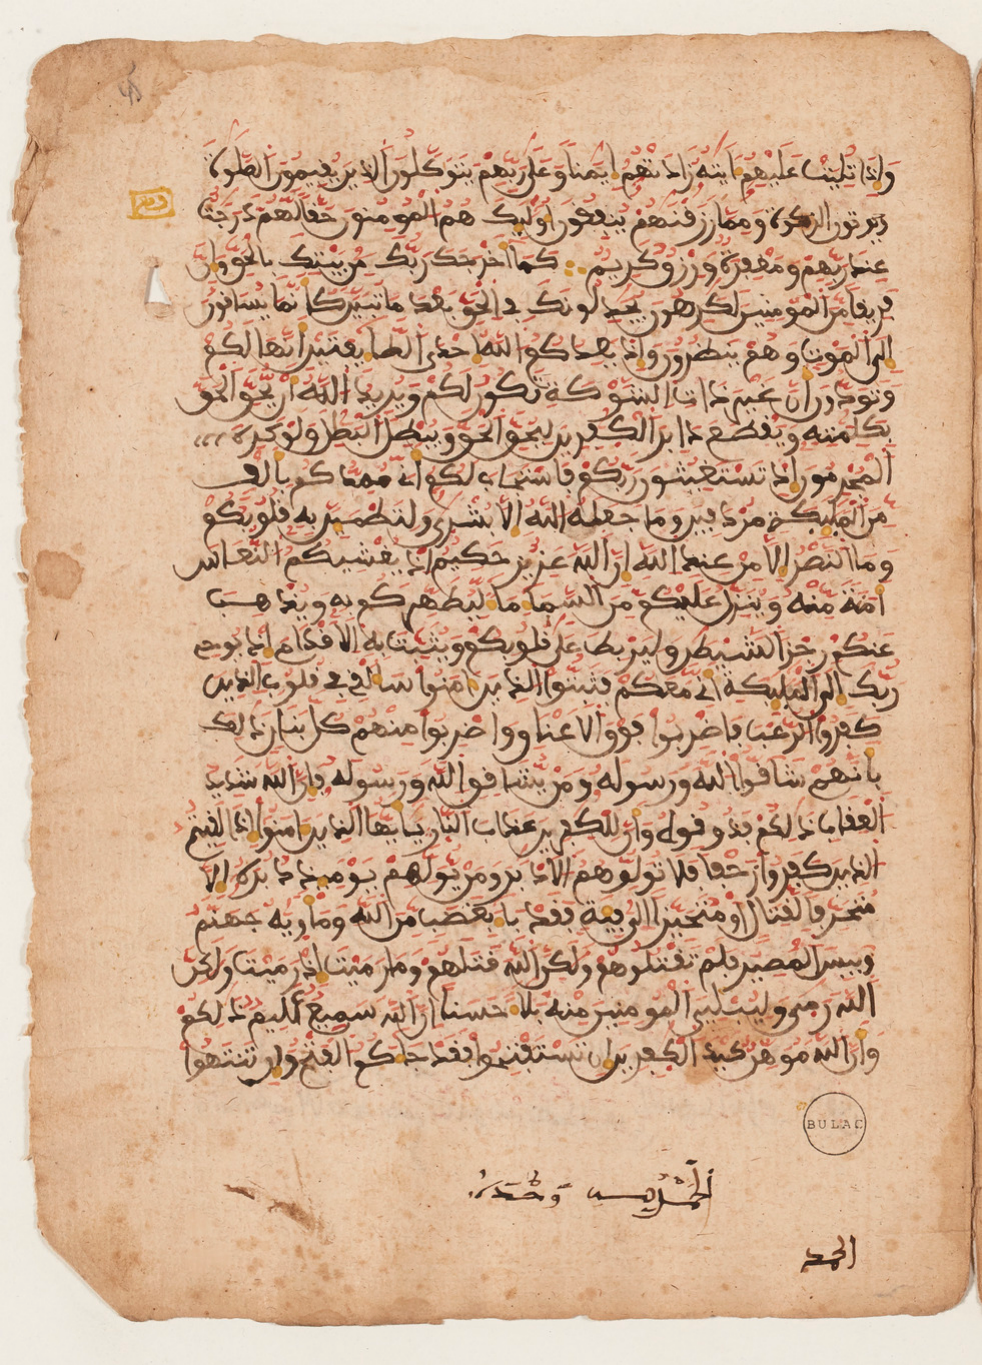 وإذا تليت عليهم ءايته زادتهم إيمنا وعلى ربهم يتوكلون الذين يقيمون الصلوة
ويوتون الزكوة ومما رزقنهم ينفقون أوليك هم المومنون حقا لهم درجت
عند ربهم ومغفرة ورزق كريم كما أخرجك ربك من بيتك بالحق وإن
فريقا من المومنين لكرهون يجدلونك في الحق بعد ما تبين كأنما يساقون
إلى الموت وهم ينظرون وإذ يعدكم الله إحدى الطايفتين أنها لكم
وتودون أن غير ذات الشوكة تكون لكم ويريد الله أن يحق الحق
بكلمته ويقطع دابر الكفرين ليحق الحق ويبطل البطل ولو كره
المجرمون إذ تستغيثون ربكم فاستجاب لكم أني ممدكم بألف
من المليكة مردفين وما جعله الله إلا بشرى ولتطمين به قلوبكم
وما النصر إلا من عند الله إن الله عزيز حكيم إذ يغشيكم النعاس
أمنة منه وينزل عليكم من السماء ماء ليطهركم به ويذهب
عنكم رجز الشيطن وليربط على قلوبكم ويثبت به الأقدام إذ يوحي
ربك إلى المليكة أني معكم فثبتوا الذين ءامنوا سألقي في قلوب الذين
كفروا الرعب فاضربوا فوق الأعناق واضربوا منهم كل بنان ذلك
بأنهم شاقوا الله ورسوله ومن يشاقق الله ورسوله فإن الله شديد
العقاب ذلكم فذوقوه وأن للكفرين عذاب النار يأيها الذين ءامنوا إذا لقيتم
الذين كفروا زحفا فلا تولوهم الأدبر ومن يولهم يوميذ دبره إلا
متحرفا لقتال أو متحيزا إلى فية فقد باء بغضب من الله ومأويه جهنم
وبيس المصير فلم تقتلوهم ولكن الله قتلهم وما رميت إذ رميت ولكن
الله رمى وليبلي المومنين منه بلاء حسنا إن الله سميع عليم ذلكم
وأن الله موهن كيد الكفرين إن تستفتحوا فقد جاءكم الفتح وإن تنتهوا
BULAC
الحمد لله وحده
الحمد